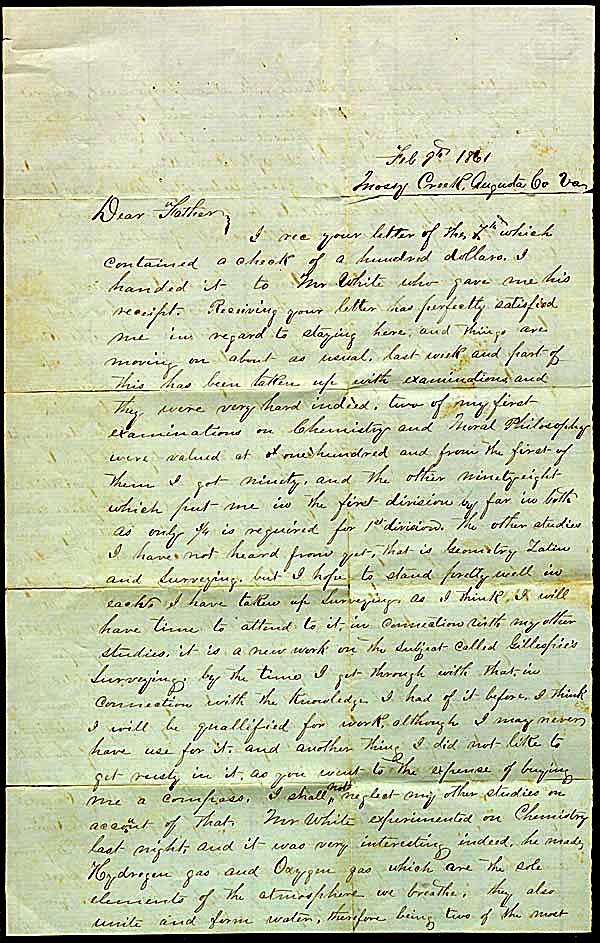 Feb 9th 1861
Mossy Creek, Augusta Co Va,
Dear Father,
I rec your letter of the 7th which
contained a check of a hundred dollars. I
handed it to Mr White who gave me his
receipt. Receiving your letter has perfectly satisfied
me in regard to staying here, and things are
moving on about as usual. last week and part of
this has been taken up with examinations, and
they were very hard indeed, two of my first
examinations on Chemistry and Moral Philosophy
were valued at one hundred and from the first of
them I got ninety, and the other ninetyeight
which put me in the first division by far in both
as only 3/4 is required for 1st division. The other studies
I have not heard from yet, that is Geometry Latin
and Surveying. but I hope to stand pretty well in
each. I have taken up Surveying, as I think I will
have time to attend to it, in connection with my other
studies. it is a new work on the subject called Gillespie's
Surveying. by the time I get through with that, in
connection with the Knowledge I had of it before. I think
I will be quallified for work, although I may never
have use for it. and another thing I did not like to
get rusty in it, as you went to the expense of buying
me a compass. I shall not neglect my other studies on
account of that. Mr White experimented on Chemistry
last night, and it was very interesting indeed, he made,
Hydrogen gas and Oxygen gas which are the sole
elements of the atmosphere we breathe, they also
unite and form water, therefore being two of the most